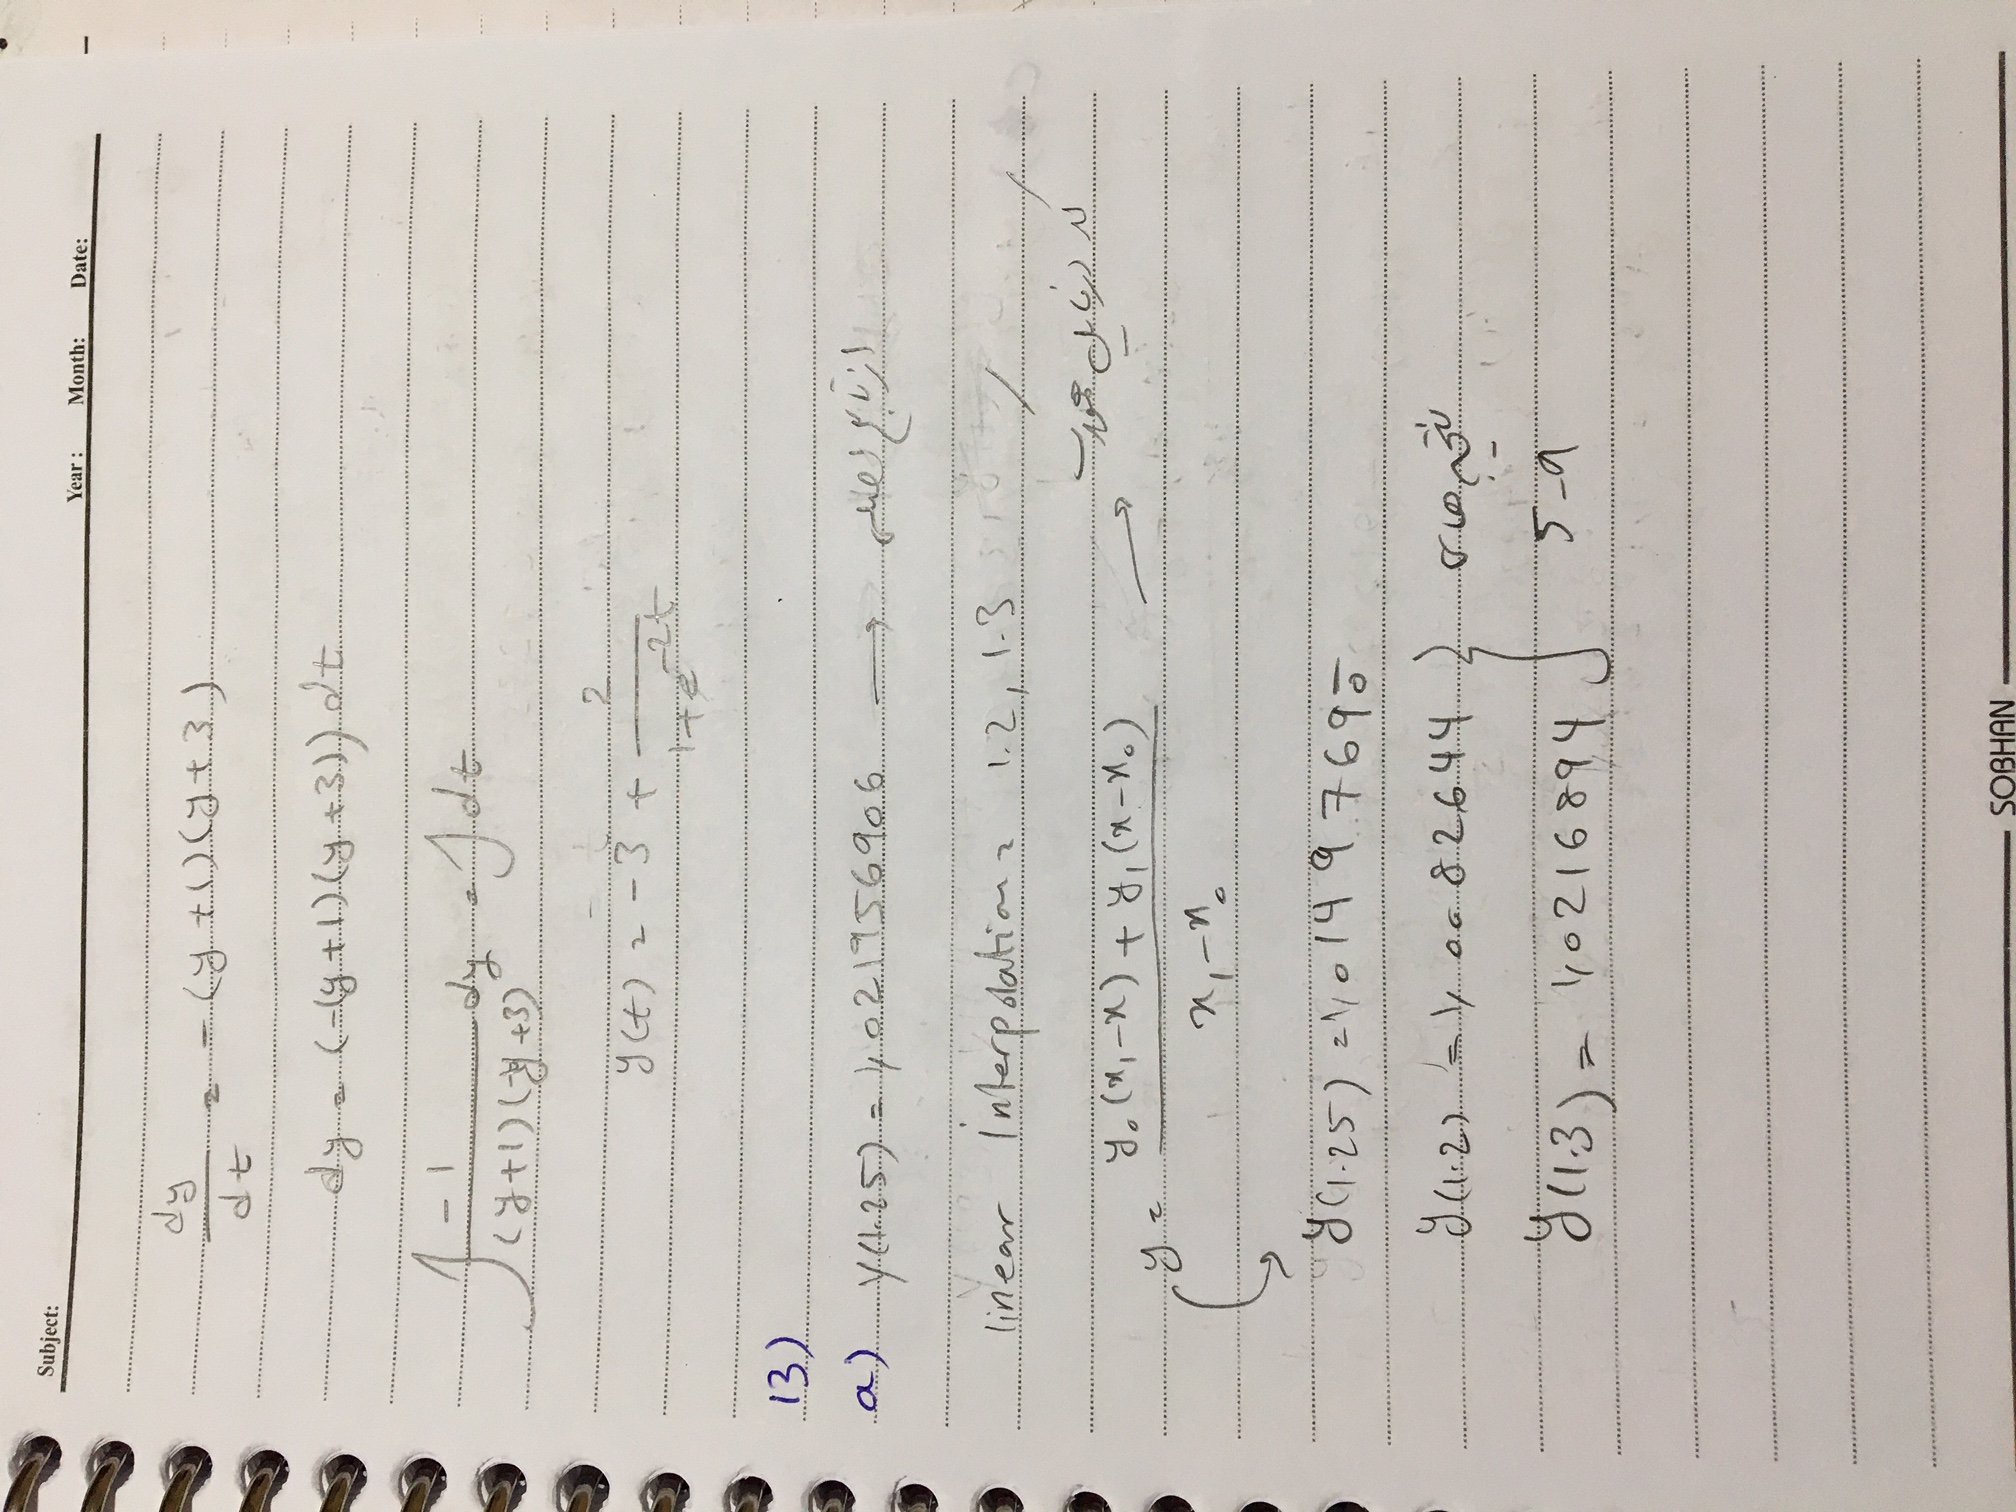 Subject:
Year: Month: Date:
dy/dt = -(y+1)(y+3)
dy = (-(y+1)(y+3))dt
∫ -1/((y+1)(y+3)) dy = ∫ dt
y(t) = -3 + 2/(1+e^-2t)
13)
a) y(1.25) = 1,021956906 → از تابع اصلی
linear interpolation = 1.2, 1.3
y = (y₀(x₁-x) + y₁(x-x₀))/(x₁-x₀) →
y(1.25) = 1,01497690
y(1.2) = 1,0082644 } نتیجه
y(1.3) = 1,0216894 } 5-9
SOBHAN